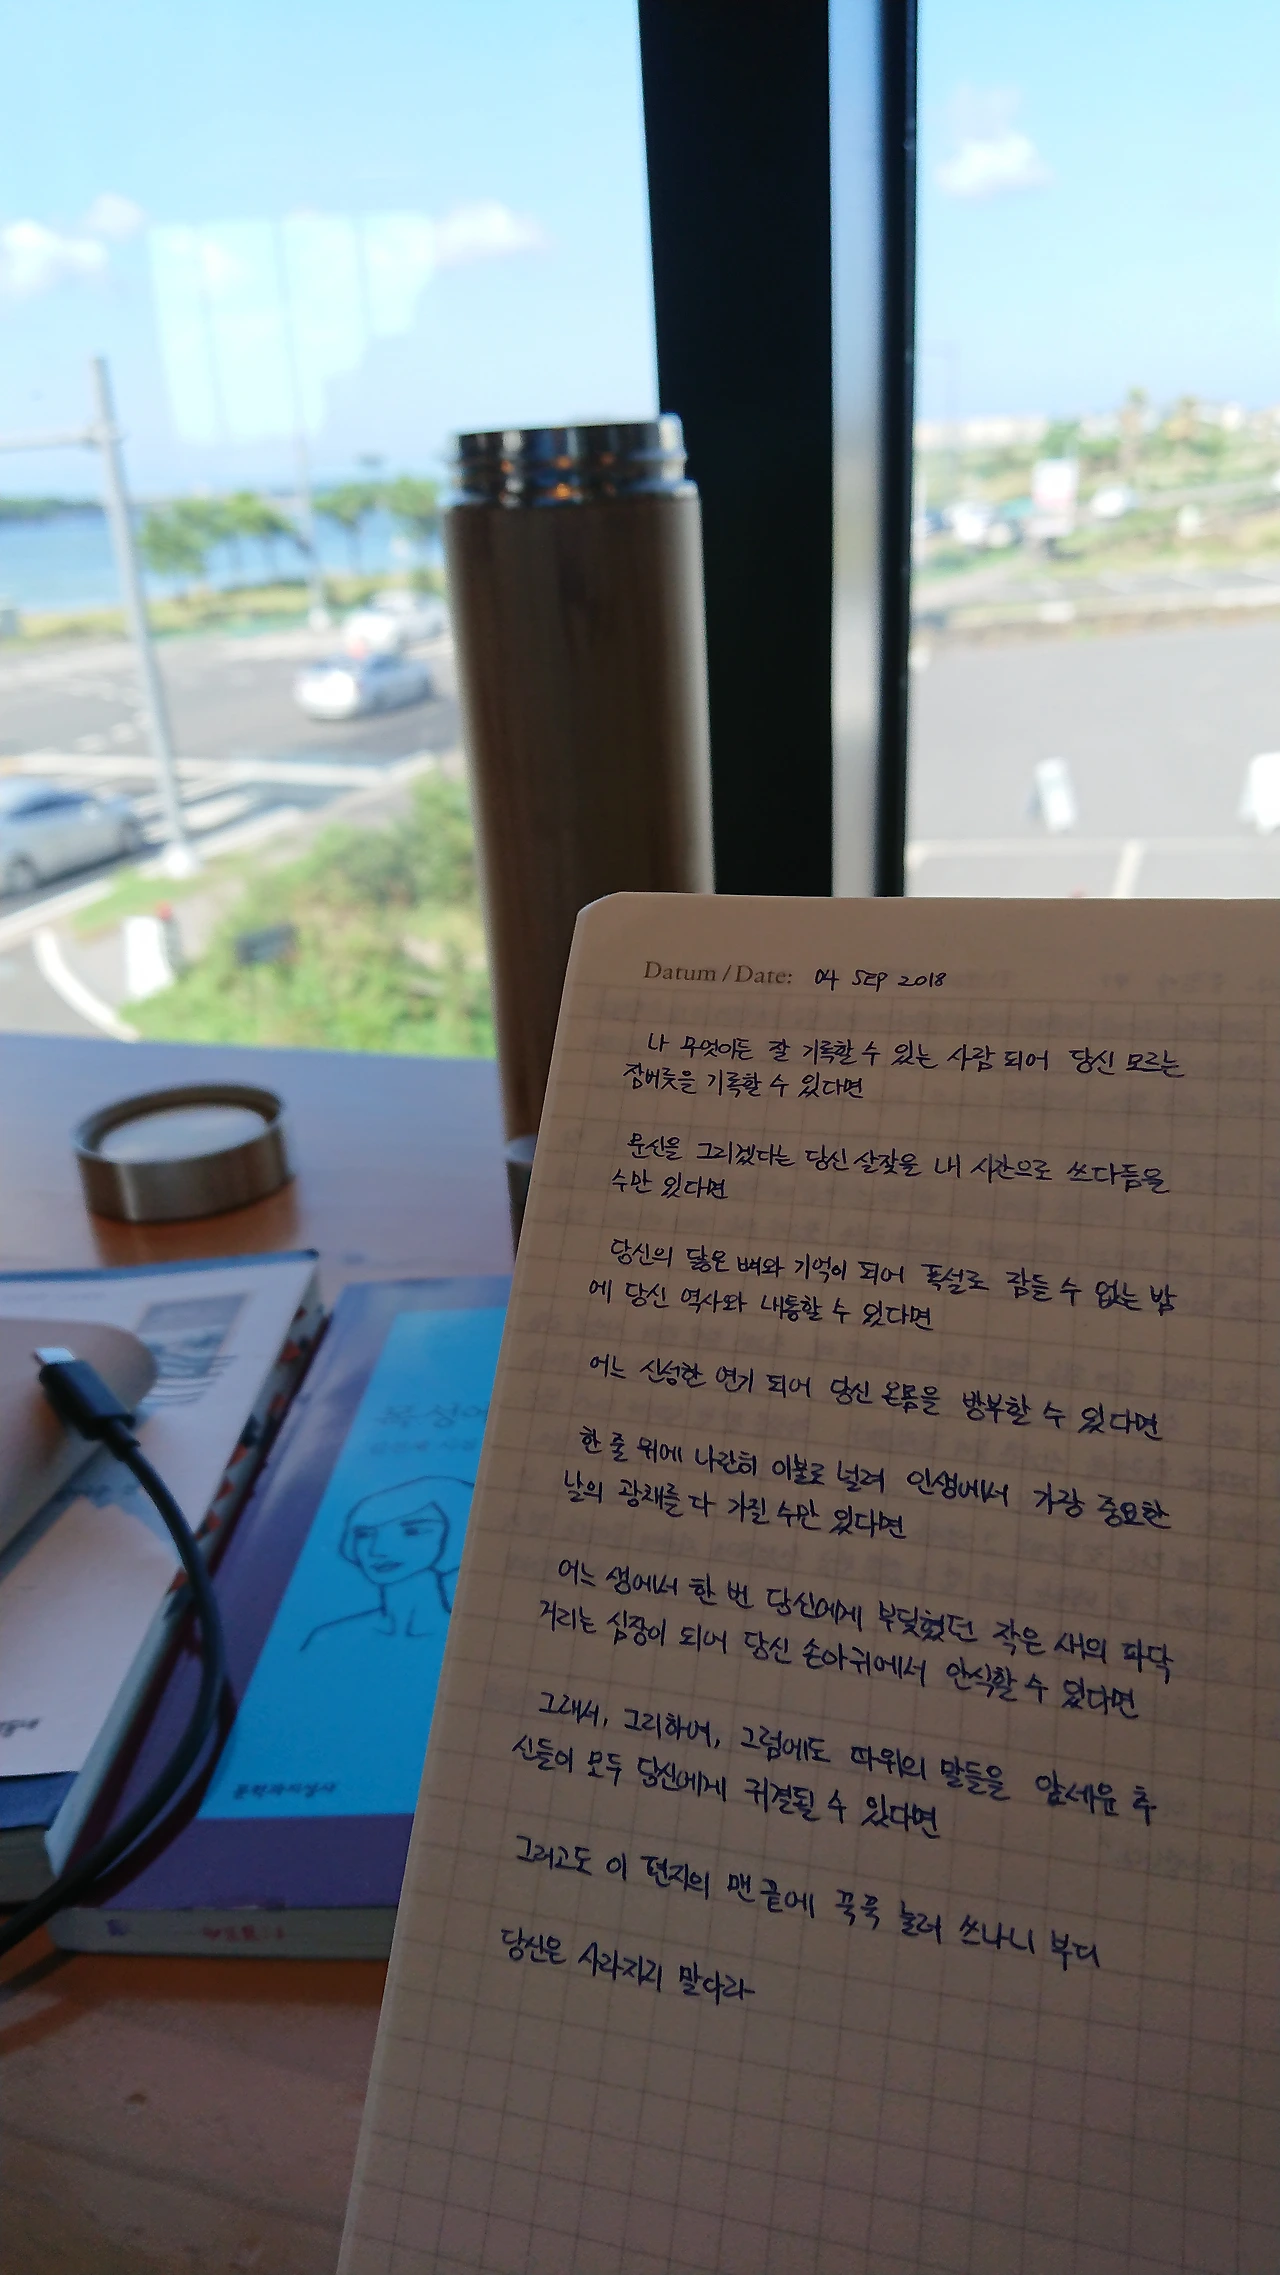 Datum / Date: 04 SEP 2018
나 무엇이든 잘 기록할 수 있는 사람 되어 당신 모르는
잠버릇을 기록할 수 있다면
문신을 그리겠다는 당신 살갗을 내 시간으로 쓰다듬을
수만 있다면
당신의 닳은 뼈와 기억이 되어 폭설로 잠들 수 없는 밤
에 당신 역사와 내통할 수 있다면
어느 신성한 연기 되어 당신 온몸을 방부할 수 있다면
한 줄 위에 나란히 이불로 널려 인생에서 가장 중요한
날의 광채를 다 가질 수만 있다면
어느 생에서 한 번 당신에게 부딪혔던 작은 새의 파닥
거리는 심장이 되어 당신 손아귀에서 안식할 수 있다면
그래서, 그리하여, 그럼에도 따위의 말들을 앞세운 추
신들이 모두 당신에게 귀결될 수 있다면
그러고도 이 편지의 맨 끝에 꾹꾹 눌러 쓰나니 부디
당신은 사라지지 말아라
문학과지성사